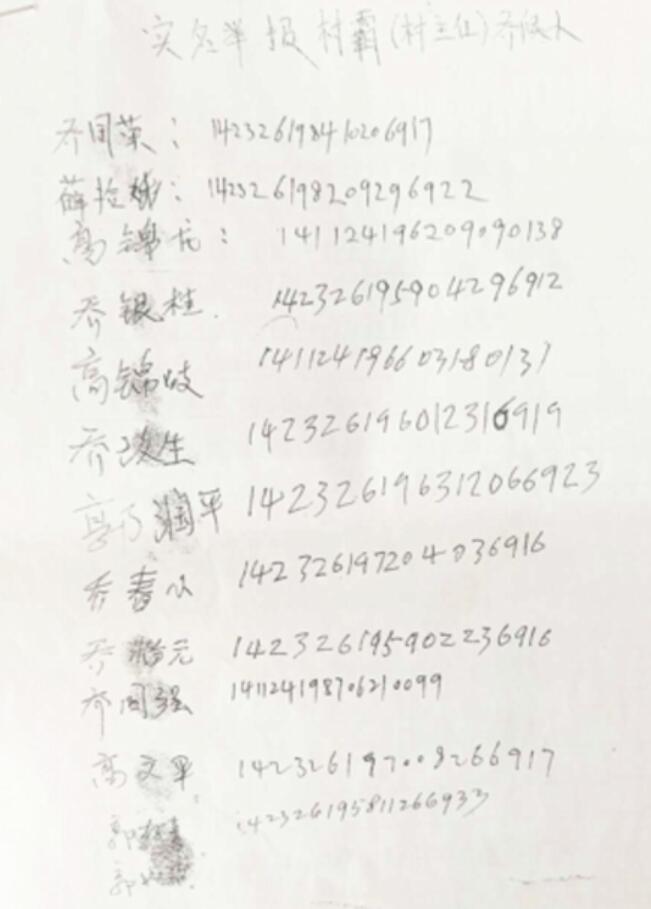 实名举报村霸(村主任)乔候人
乔国荣: 142326198410206917
薛拴娥: 142326198209296922
高锦: 141124196209090138
乔银桂. 142326195904296912
高锦岐 141124196603180137
乔改生 142326196012316919
润平 142326196312066923
乔春小 142326197204036916
乔元 142326195902236916
乔国强 141124198706210099
高文平 142326197008266917
郭 142326195811266933
郭